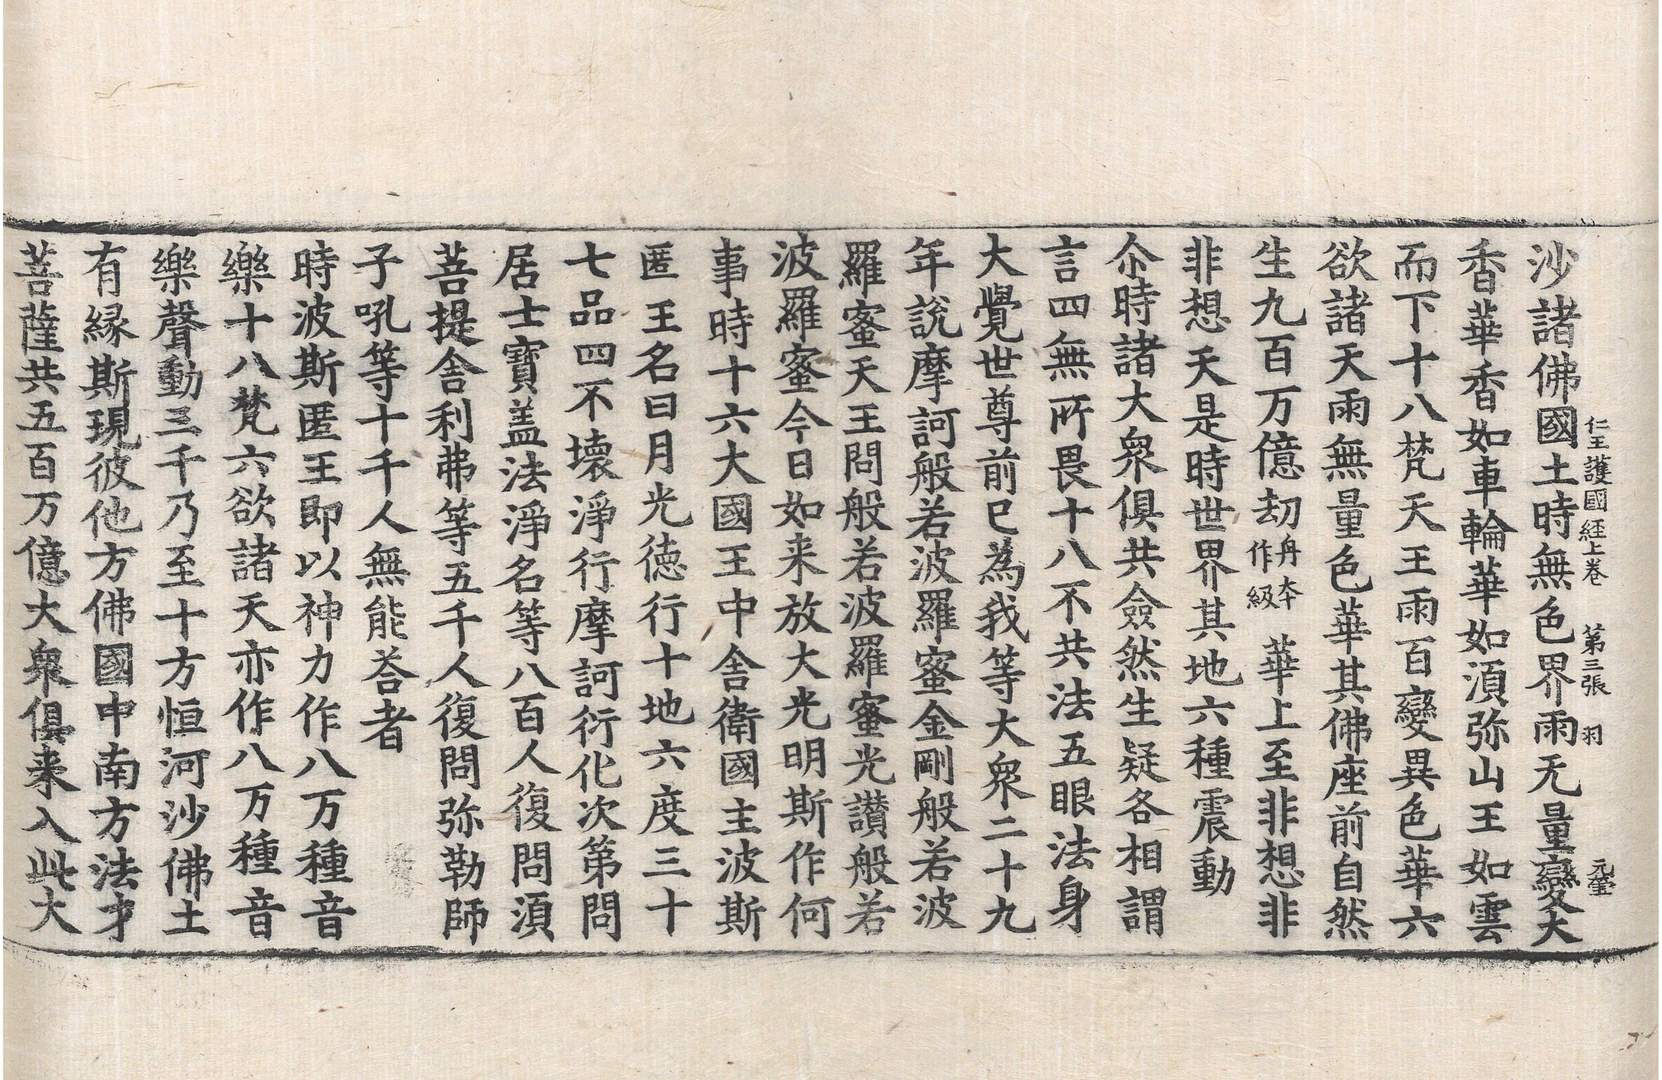 仁王護國經上卷 第三張 羽
元奎
沙諸佛國土時無色界雨无量變大
香華香如車輪華如湏弥山王如雲
而下十八梵天王雨百變異色華六
欲諸天雨無量色華其佛座前自然
生九百万億劫丹本作級華上至非想非
非想天是時世界其地六種震動
尒時諸大衆俱共僉然生疑各相謂
言四無所畏十八不共法五眼法身
大覺世尊前已為我等大衆二十九
年說摩訶般若波羅蜜金剛般若波
羅蜜天王問般若波羅蜜光讃般若
波羅蜜今日如来放大光明斯作何
事時十六大國王中舍衛國主波斯
匿王名曰月光德行十地六度三十
七品四不壞淨行摩訶衍化次第問
居士寶盖法淨名等八百人復問湏
菩提舍利弗等五千人復問弥勒師
子吼等十千人無能荅者
時波斯匿王即以神力作八万種音
樂十八梵六欲諸天亦作八万種音
樂聲動三千乃至十方恒河沙佛土
有縁斯現彼他方佛國中南方法才
菩薩共五百万億大衆俱来入此大